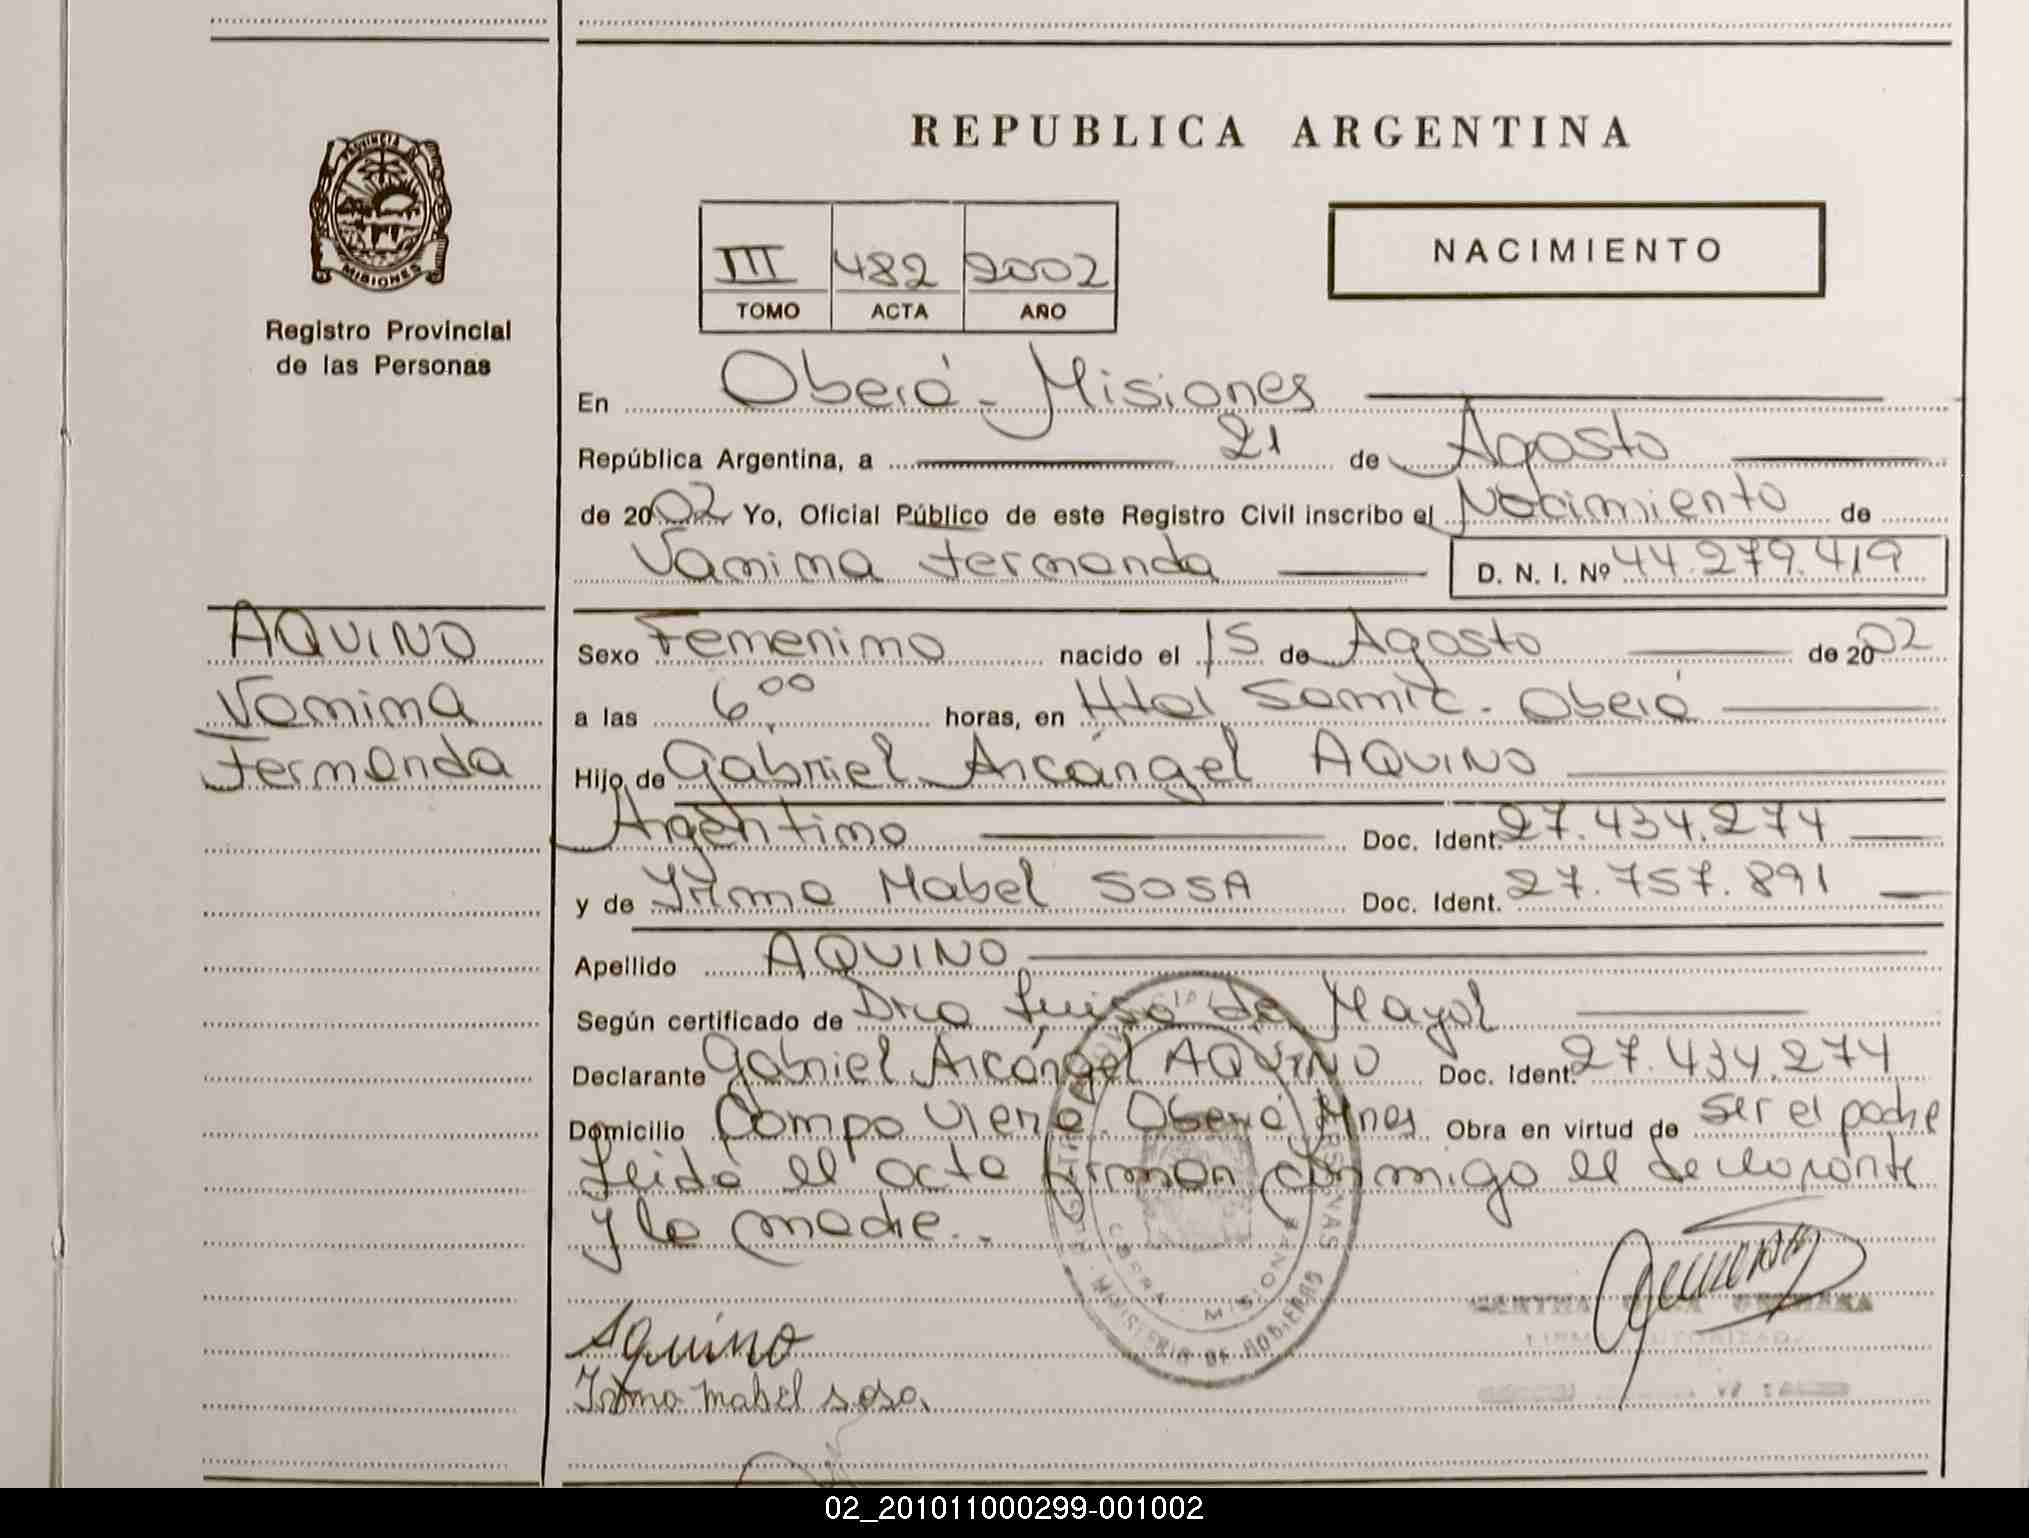 PROVINCIA
MISIONES
Registro Provincial
de las Personas
REPUBLICA ARGENTINA
III 482 2002
TOMO ACTA AÑO
NACIMIENTO
En Oberá - Misiones
República Argentina, a 21 de Agosto
de 2002 Yo, Oficial Público de este Registro Civil inscribo el Nacimiento de
Vanina Fernanda D. N. I. Nº 44.279.419
AQUINO
Vanina
Fernanda
Sexo Femenino nacido el 15 de Agosto de 2002
a las 6:00 horas, en Htal Samic - Oberá
Hijo de Gabriel Arcángel AQUINO
Argentino Doc. Ident. 27.434.274
y de Irma Mabel SOSA Doc. Ident. 27.757.891
Apellido AQUINO
Según certificado de Dra Luisa de Mayol
Declarante Gabriel Arcángel AQUINO Doc. Ident. 27.434.274
Domicilio Campo Viera Oberá Mnes Obra en virtud de ser el padre
Leída el acta firman conmigo el declarante
y la madre..
OBERA - MISIONES
MINISTERIO DE GOBIERNO
Aquino
Irma Mabel sosa.
FIRMA AUTORIZADA
02_201011000299-001002